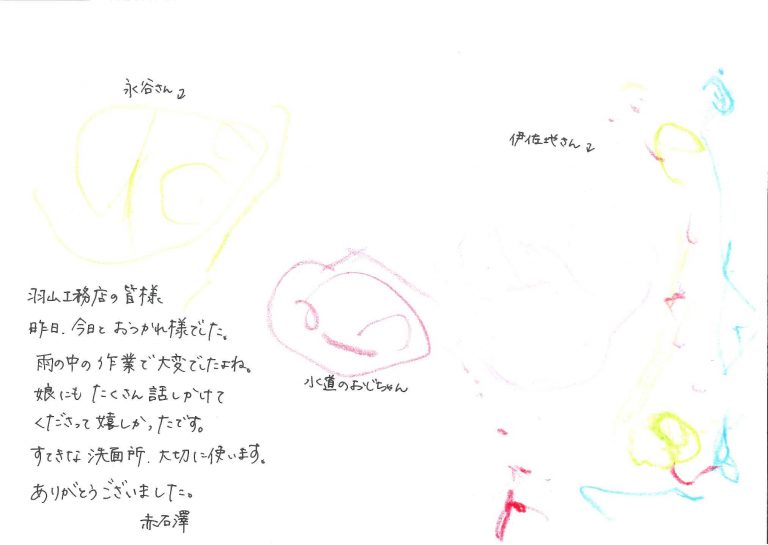 永谷さん
伊佐地さん
水道のおじちゃん
羽山工務店の皆様
昨日、今日と おつかれ様でした。
雨の中の作業で大変でしたよね。
娘にも たくさん 話しかけて
くださって 嬉しかったです。
すてきな 洗面所、大切に使います。
ありがとうございました。
赤石澤